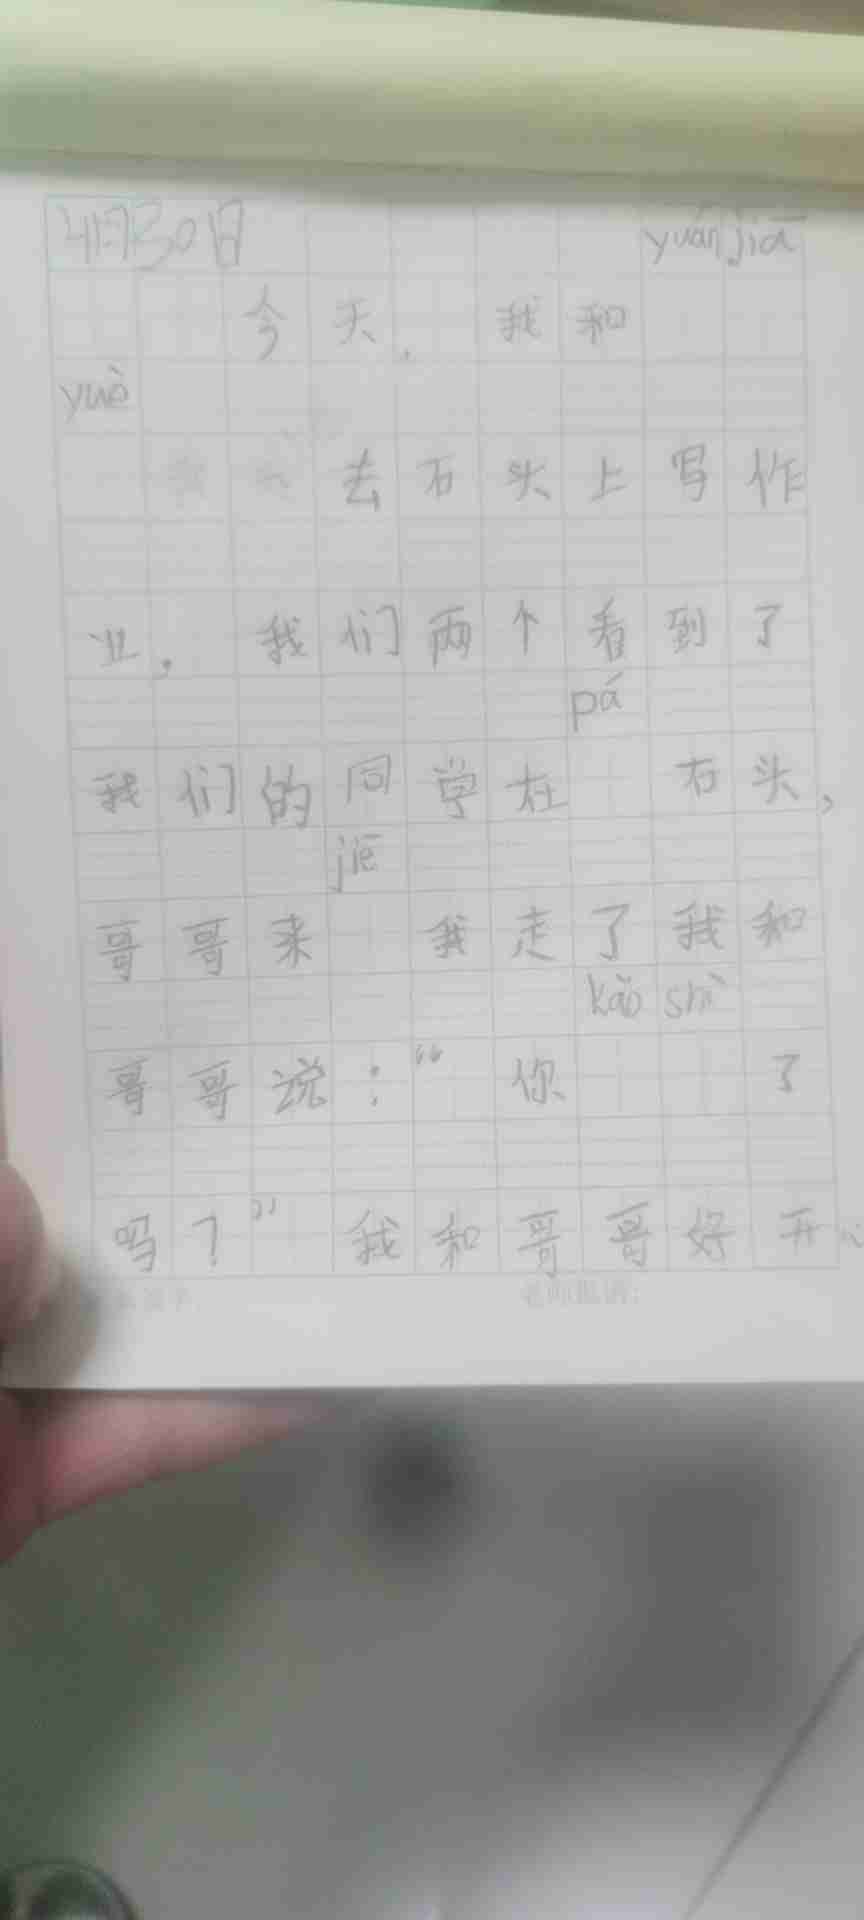 4月30日 yuán jiā
今天，我和
yuè
去石头上写作
业，我们两个看到了
pá
我们的同学在 石头，
jiē
哥哥来 我走了我和
kǎo shì
哥哥说：“你 了
吗？”我和哥哥好开
老师